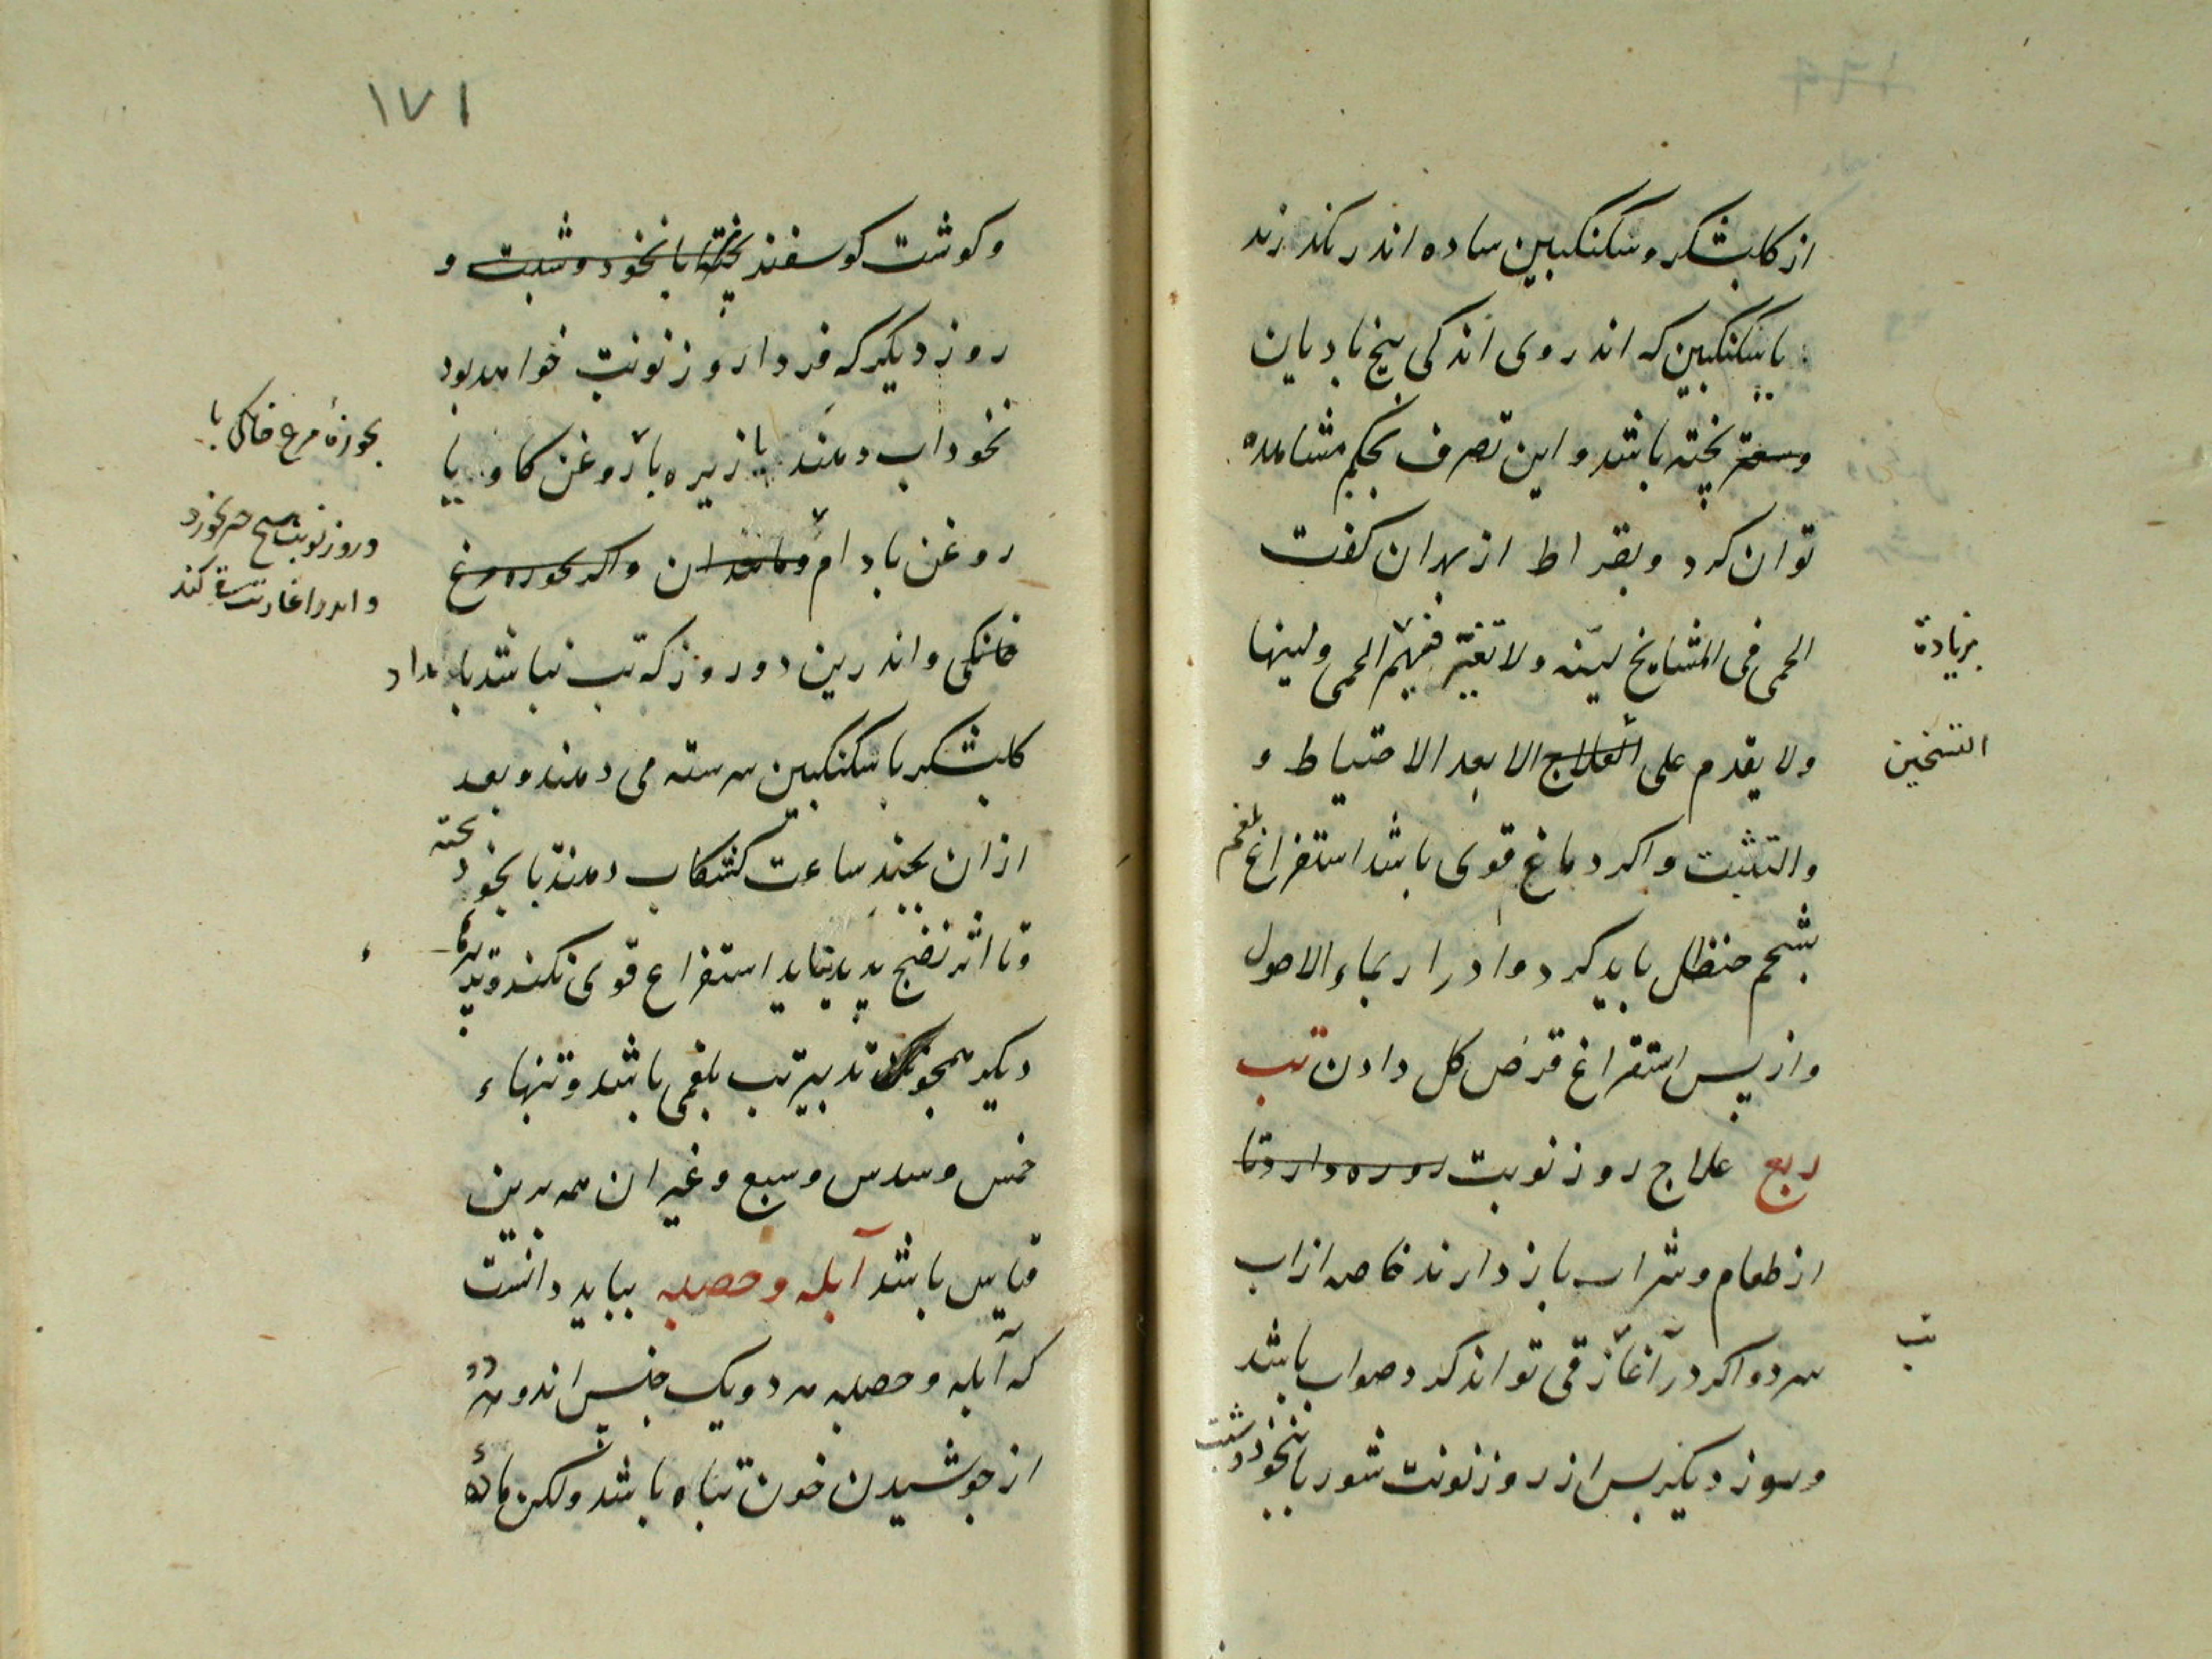 از کلبشکر و سکنکبین ساده اندر نکذرند
یا سکنکبین که اندر وی اندکی بیخ بادیان
وسعتر پخته باشد و این تصرف بحکم مشاهدة
توان کرد و بقراط از بهر ان کفت
الحمی فی المشایخ لینه ولا تغتر فیهم الحمی ولینها
بزیادة
ولا یقدم علی العلاج الا بعد الاحتیاط و
التسخین
والتثبت و اکر دماغ قوی باشد استفراغ بلغم
بشحم حنظل باید کرد و ادرار بماء الاصول
و از پس استفراغ قرص کل دادن تب
ربع علاج روز نوبت روزه دارد تا
از طعام و شراب باز دارند خاصه از اب
سرد و اکر در آغاز قی تواند کرد صواب باشد
تب
و روز دیکر پس از روز نوبت شوربا بنخود و شبت
۱۷۱
و کوشت کوسفند پخته با نخود و شبت و
روز دیکر که فردا روز نوبت خواهد بود
نخوداب دهند با زیره با روغن کاو یا
بجوزهٔ مرغ خانکی با
روغن بادام و مانند ان و اکر بجوزه مرغ
و روز نوبت هیچ نخورد
خانکی و اندرین دو روز که تب نباشد بامداد
کلبشکر با سکنکبین سرشته می دهند و بعد
از ان بچند ساعت کشکاب دهند با نخود پخته
و تا اثر نضج پدید نیاید استفراغ قوی نکنند و تدبیرهاء
دیکر همچون تدبیر تب بلغمی باشد و تبهاء
خمس و سدس و سبع و غیر ان همه برین
قیاس باشد آبله و حصبه بباید دانست
که آبله و حصبه هر دو یک جنس اند و هر دو
از جوشیدن خون تباه باشد ولکن مادهٔ